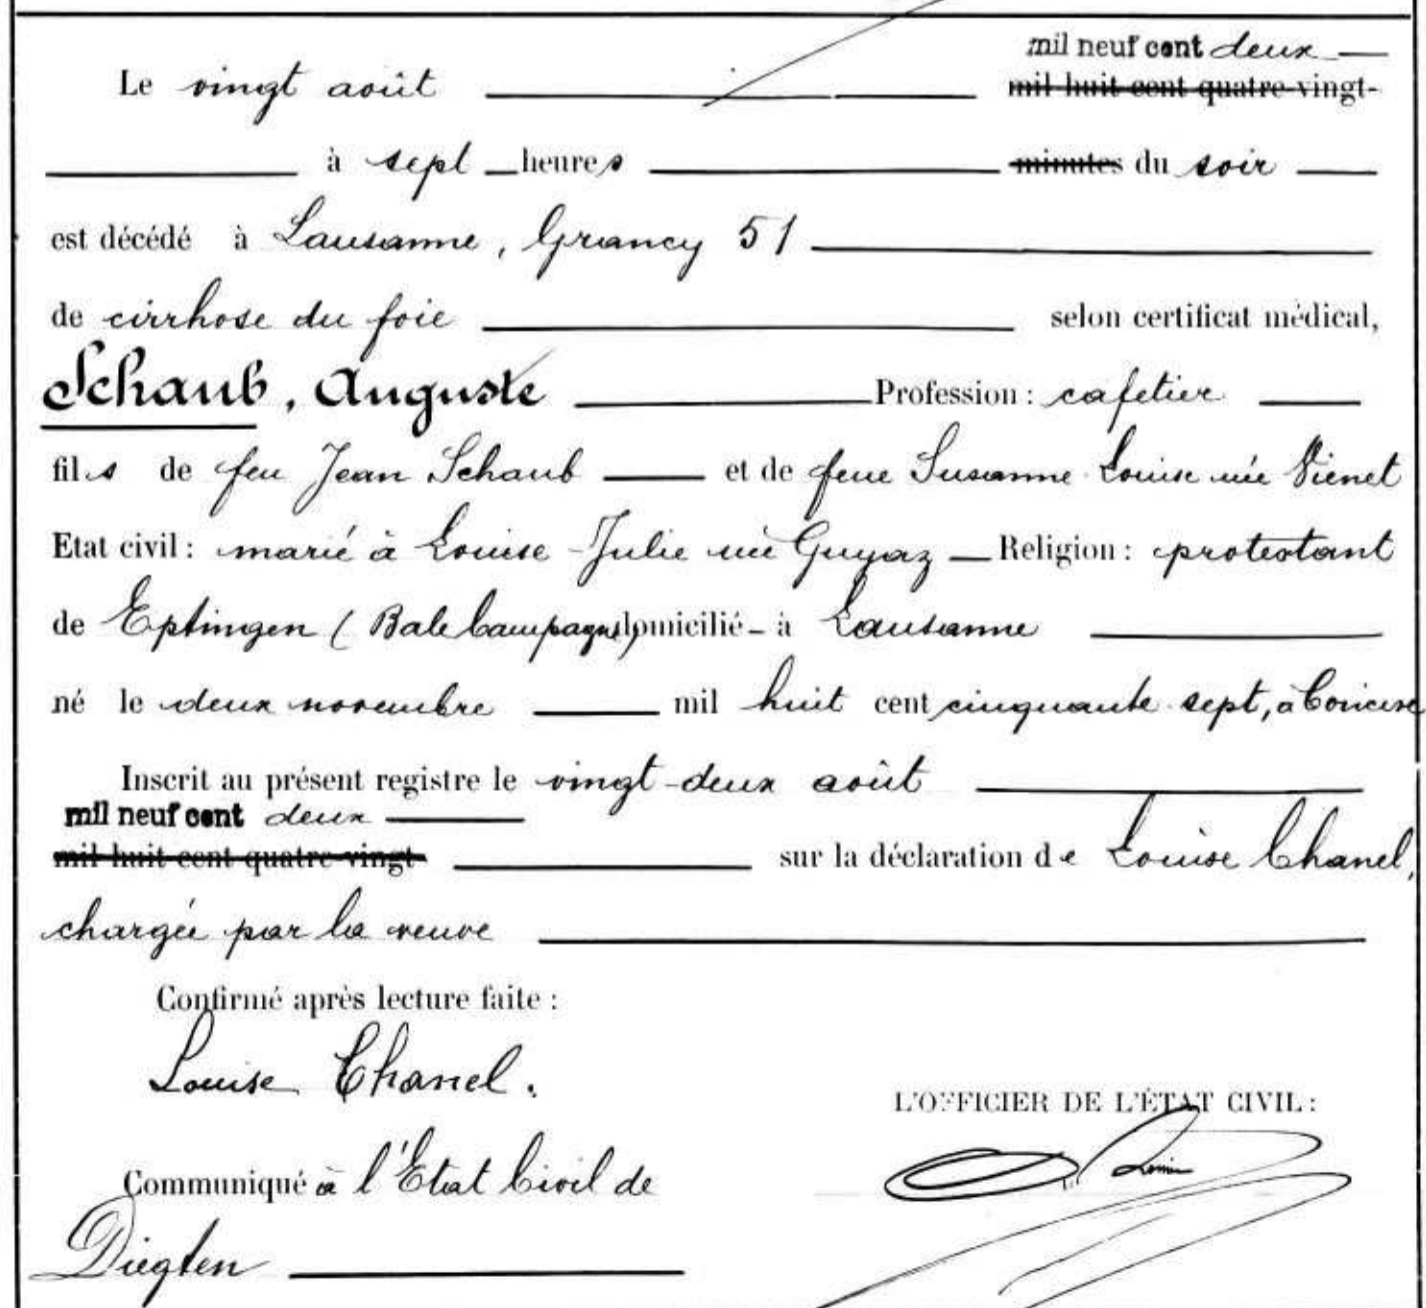 mil neuf cent deux
Le vingt août mil huit cent quatre-vingt-
à sept heures minutes du soir
est décédé à Lausanne, Grancy 51
de cirrhose du foie selon certificat médical,
Schaub, Auguste Profession : cafetier
fils de feu Jean Schaub et de feue Susanne Louise née Vienet
Etat civil : marié à Louise-Julie née Guyaz Religion : protestant
de Eptingen (Bale Campagne) domicilié à Lausanne
né le deux novembre mil huit cent cinquante sept, à Concise
Inscrit au présent registre le vingt-deux août
mil neuf cent deux
mil huit cent quatre-vingt- sur la déclaration de Louise Chanel,
chargée par la veuve
Confirmé après lecture faite :
Louise Chanel.
L'OFFICIER DE L'ÉTAT CIVIL :
Communiqué à l'Etat Civil de
Diegten